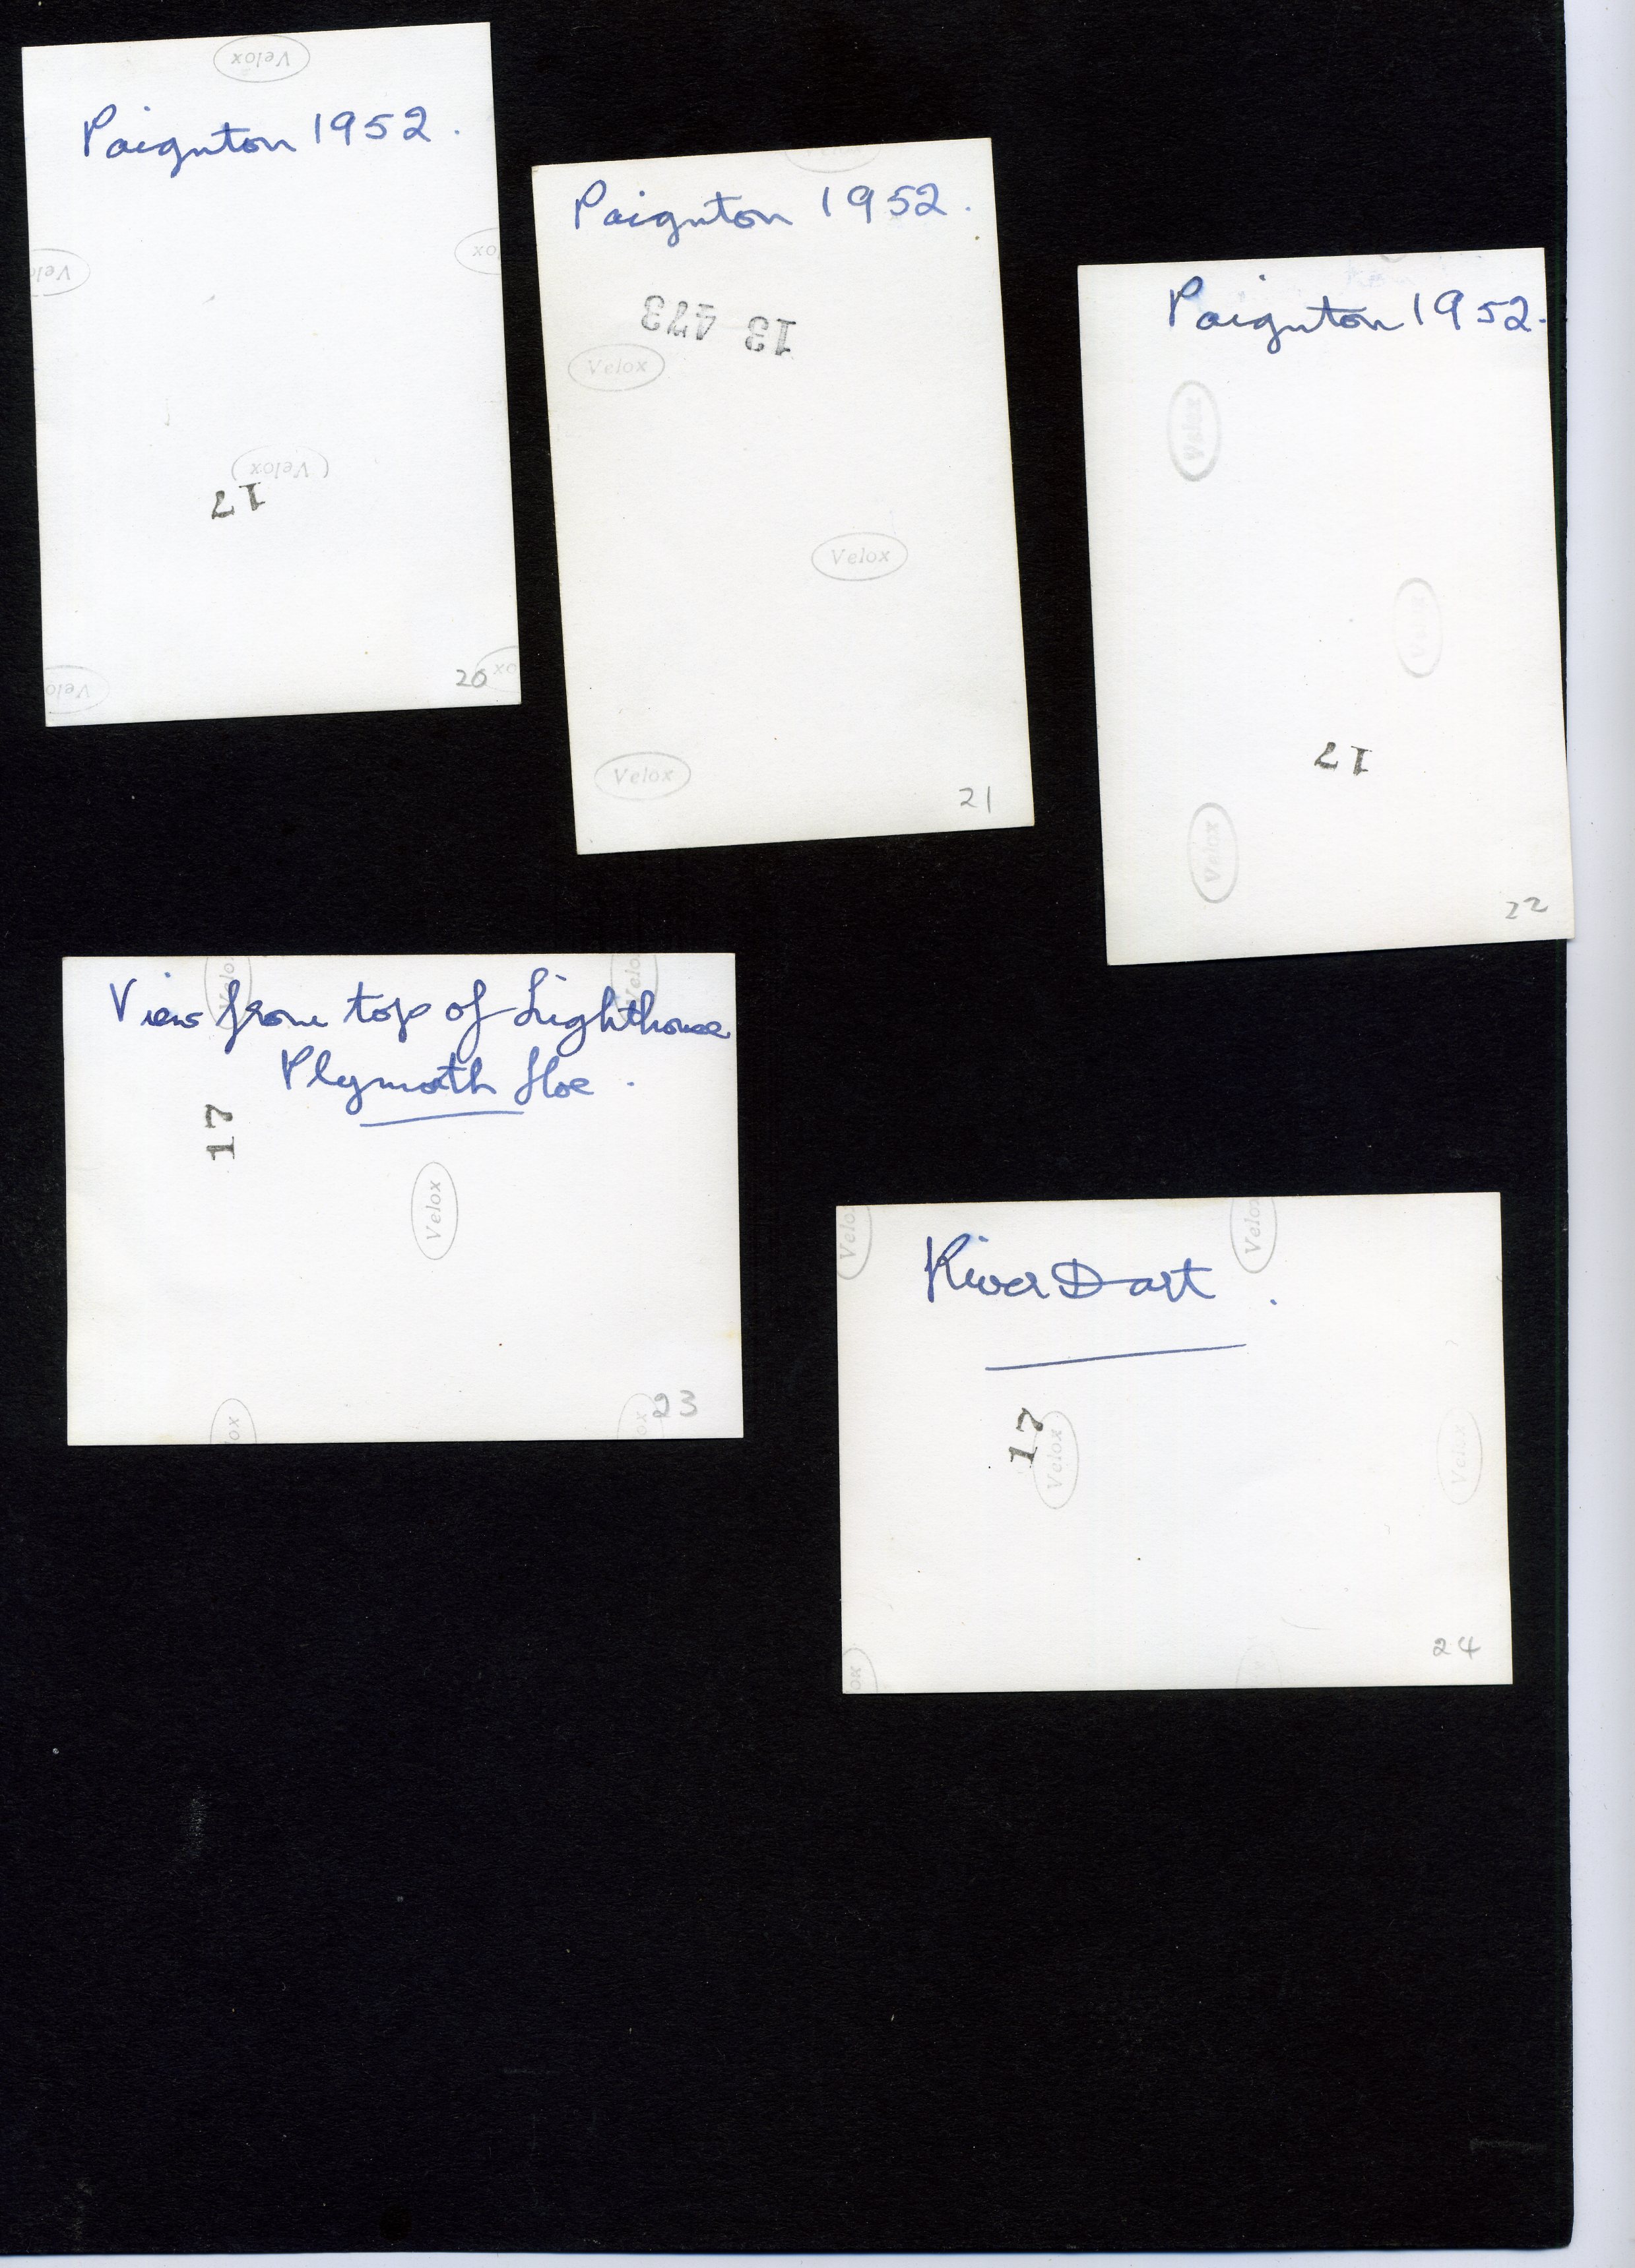 Velox
Paignton 1952.
Velox
Velox
Velox
17
Velox
20
Paignton 1952.
13 473
Velox
Velox
Velox
21
Paignton 1952.
Velox
Velox
17
Velox
22
Velox
Velox
View from top of Lighthouse
Plymouth Hoe.
17
Velox
23
Velox
Velox
River Dart.
17
Velox
Velox
24